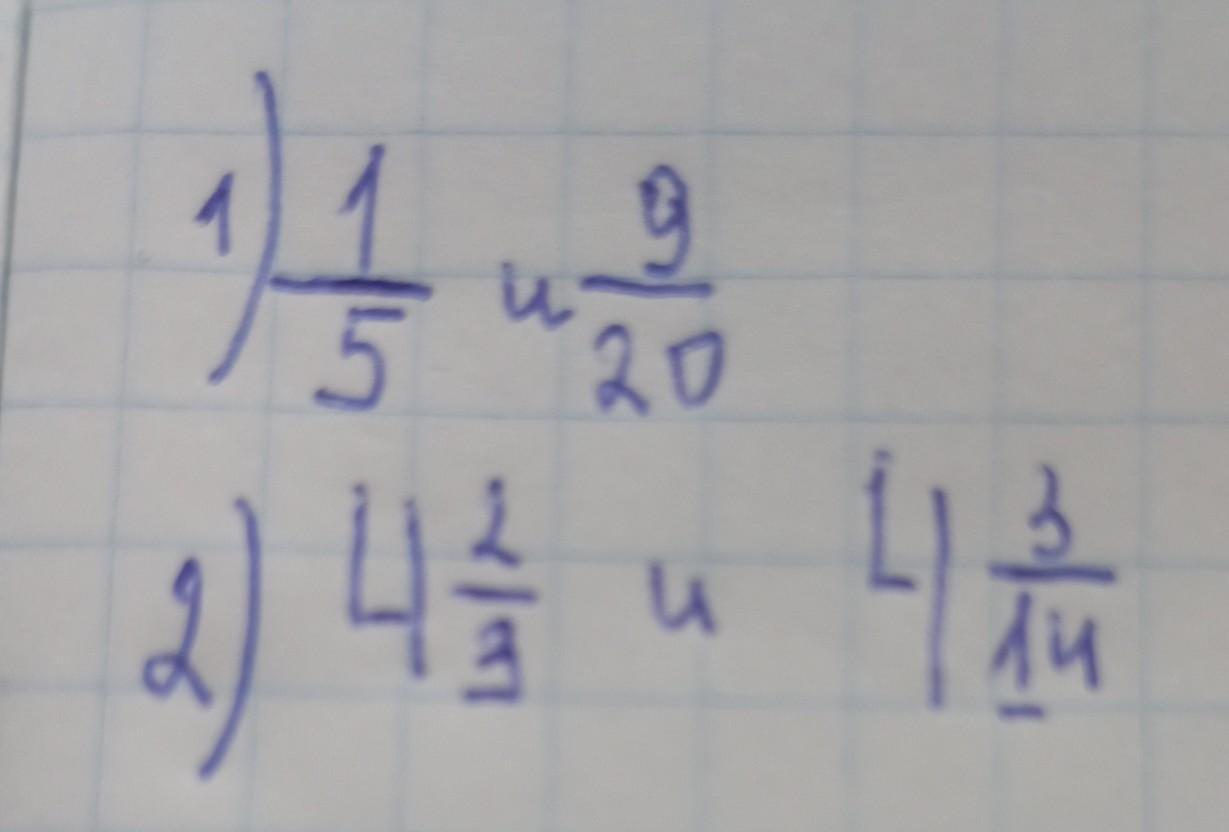 1) 1/5 и 9/20
2) 4 2/3 и 4 3/14